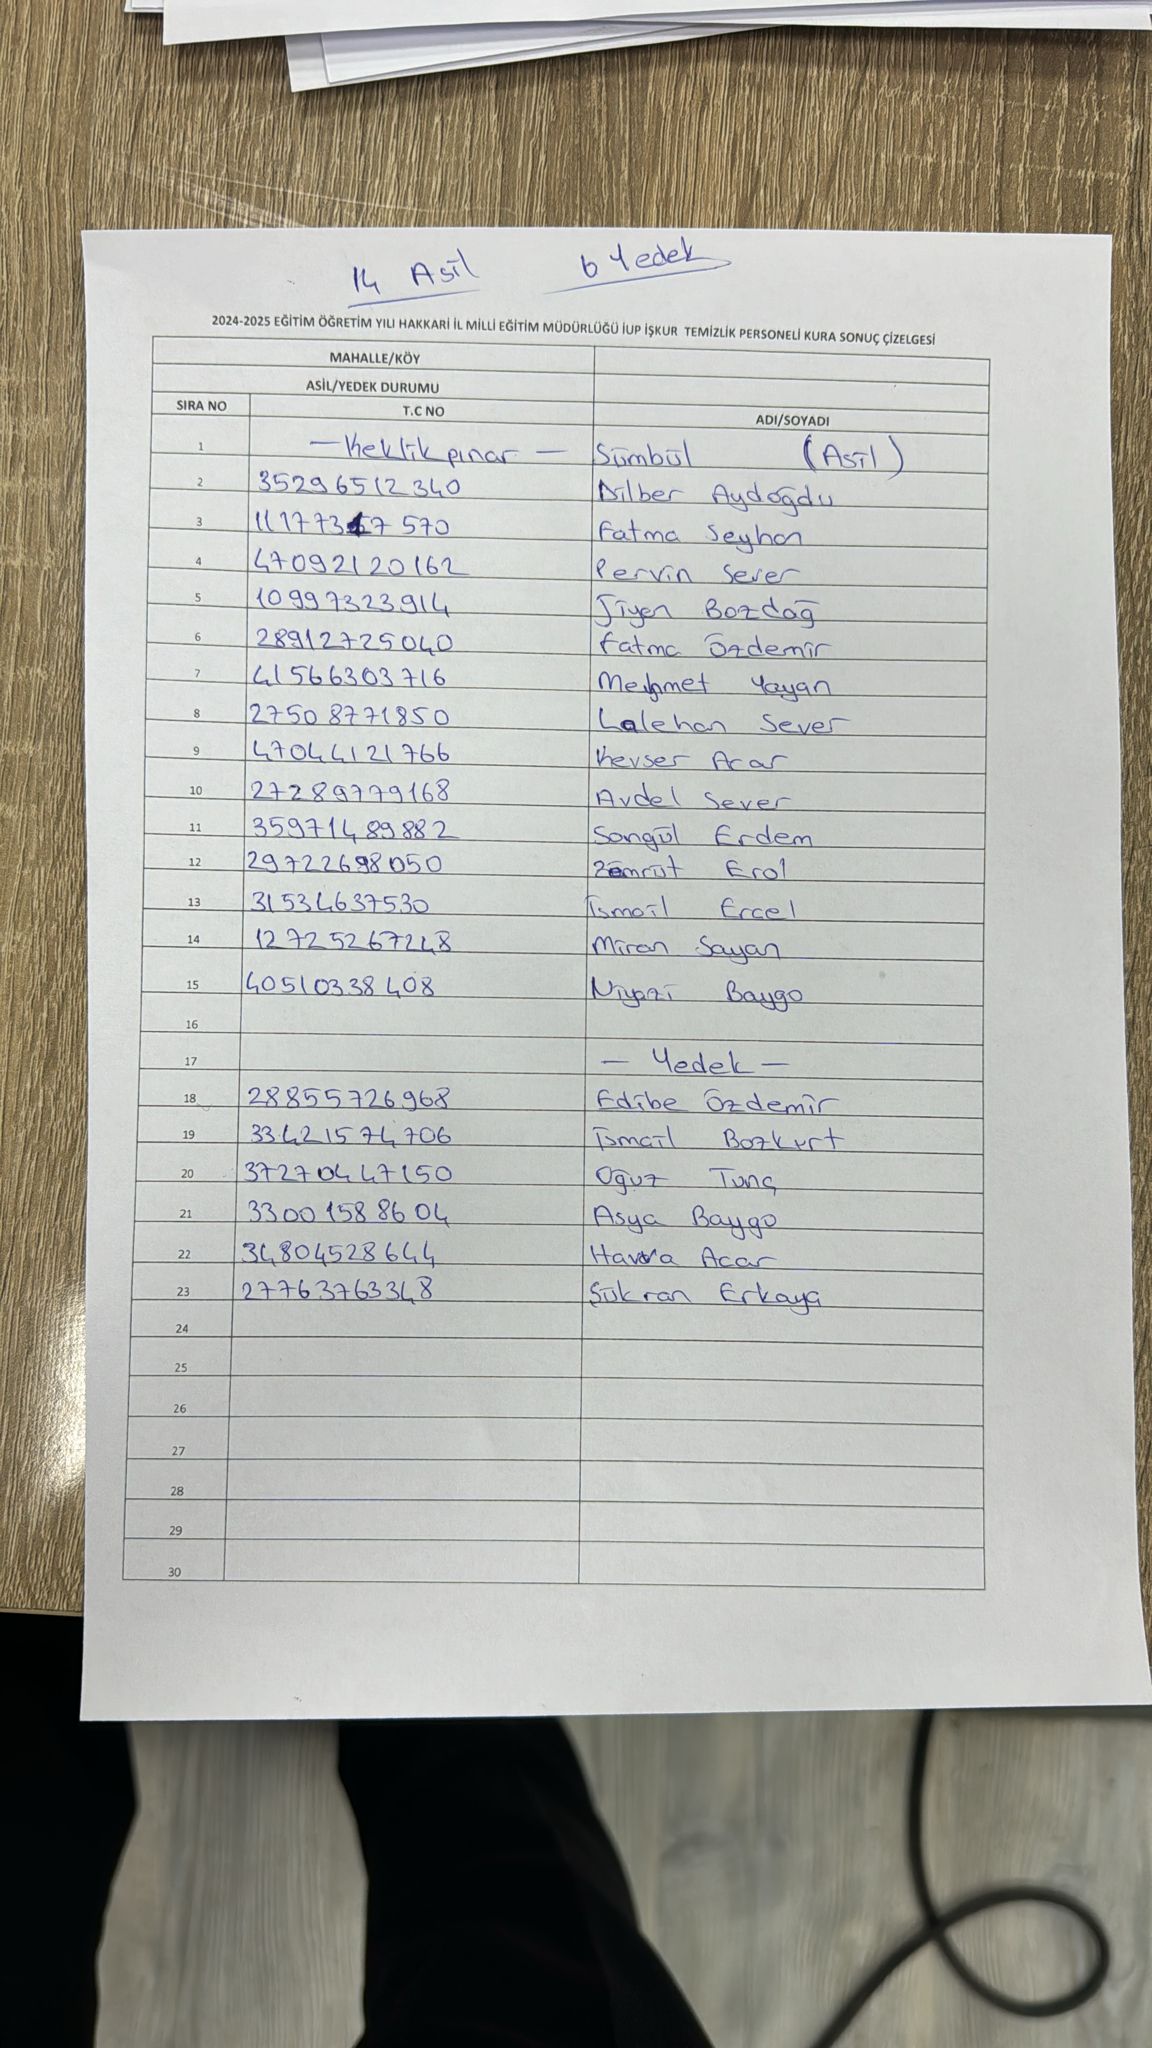 14 Asil 6 Yedek
2024-2025 EĞİTİM ÖĞRETİM YILI HAKKARİ İL MİLLİ EĞİTİM MÜDÜRLÜĞÜ İUP İŞKUR TEMİZLİK PERSONELİ KURA SONUÇ ÇİZELGESİ
MAHALLE/KÖY
ASİL/YEDEK DURUMU
SIRA NO T.C NO ADI/SOYADI
1 — Keklikpınar — Sümbül (Asil)
2 35296512340 Dilber Aydoğdu
3 111773 7570 Fatma Seyhan
4 47092120162 Pervin Sever
5 10997323914 Jiyen Bozdağ
6 28912725040 Fatma Özdemir
7 41566303716 Mehmet Yayan
8 27508771850 Lalehan Sever
9 47044121766 Kevser Acar
10 27289779168 Avdel Sever
11 35971489882 Songül Erdem
12 29722698050 Zümrüt Erol
13 31534637530 İsmail Ercel
14 12725267248 Miran Sayan
15 40510338408 Niyazi Baygo
16
17 — Yedek —
18 28855726968 Edibe Özdemir
19 33421574706 İsmail Bozkurt
20 37270447150 Oğuz Tunç
21 33001588604 Asya Baygo
22 34804528644 Havva Acar
23 27763763348 Şükran Erkaya
24
25
26
27
28
29
30